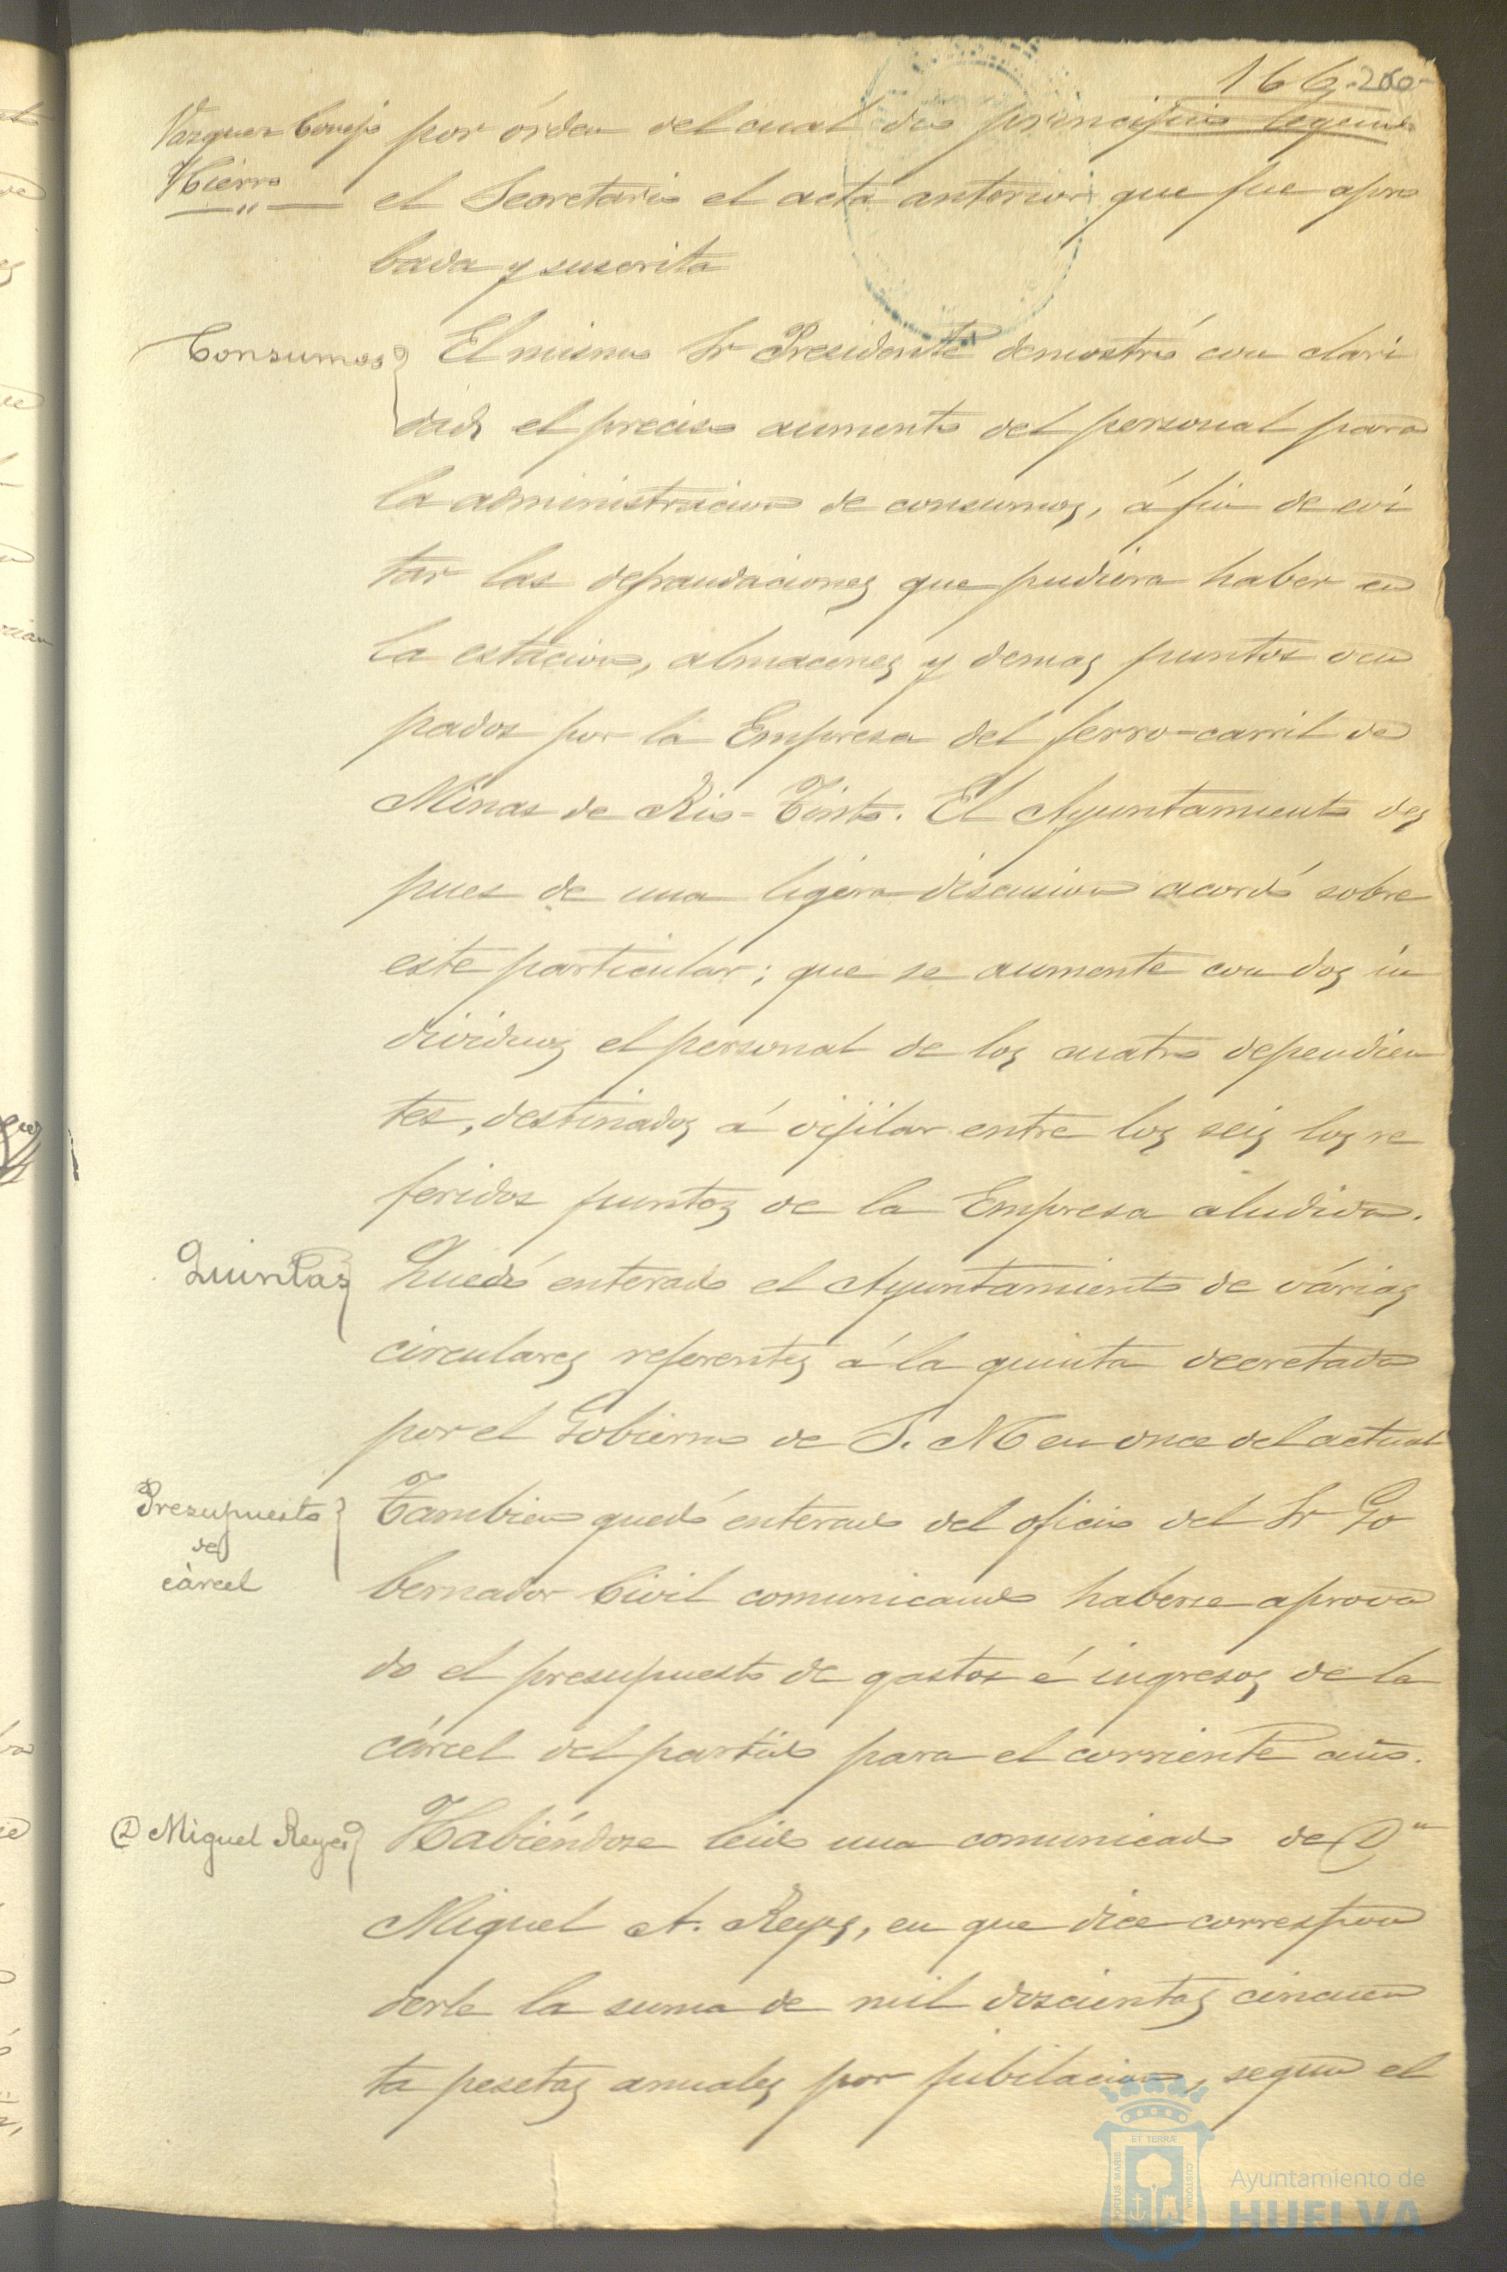 166. 260
Vazquez Conejo por órden del cual dio principio leyendo
Hierro el Secretario el acta anterior que fue apro
bada y suscrita
Consumos El mismo Sr Presidente demostró con clari
dad, el preciso aumento del personal para
la administracion de consumos, á fin de evi
tar las defraudaciones que pudiera haber en
la estacion, almacenes y demas puntos ocu
pados por la Empresa del ferro-carril de
Minas de Rio-Tinto. El Ayuntamiento des
pues de una ligera discusion acordó sobre
este particular; que se aumente con dos in
dividuos el personal de los cuatro dependien
tes, destinados á vijilar entre los seis los re
feridos puntos de la Empresa aludida.
Quintas Quedó enterado el Ayuntamiento de várias
circulares referentes á la quinta decretada
por el Gobierno de S. M en once del actual
Presupuesto Tambien quedó enterado del oficio del Sr Go
de
cárcel bernador Civil comunicando haberse aprova
do el presupuesto de gastos é ingresos de la
cárcel del partido para el corriente año.
D Miguel Reyes Habiéndose leido una comunicado de Dn
Miguel A. Reyes, en que dice correspon
derle la suma de mil doscientas cincuen
ta pesetas anuales por jubilacion, segun el
PORTUS MARIS
ET TERRÆ
CUSTODIA
Ayuntamiento de
HUELVA